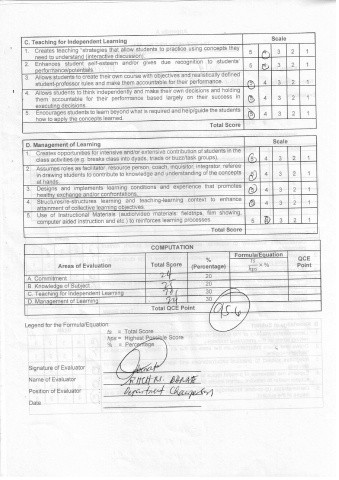 C. Teaching for Independent Learning Scale
1. Creates teaching strategies that allow students to practice using concepts they need to understand (interactive discussion). 5 4 3 2 1
2. Enhances student self-esteem and/or gives due recognition to students' performance/potentials. 5 4 3 2 1
3. Allows students to create their own course with objectives and realistically defined student-professor rules and make them accountable for their performance. 5 4 3 2 1
4. Allows students to think independently and make their own decisions and holding them accountable for their performance based largely on their success in executing decisions. 5 4 3 2 1
5. Encourages students to learn beyond what is required and help/guide the students how to apply the concepts learned. 5 4 3 2 1
Total Score
D. Management of Learning Scale
1. Creates opportunities for intensive and/or extensive contribution of students in the class activities (e.g. breaks class into dyads, triads or buzz/task groups). 5 4 3 2 1
2. Assumes roles as facilitator, resource person, coach, inquisitor, integrator, referee in drawing students to contribute to knowledge and understanding of the concepts at hands. 5 4 3 2 1
3. Designs and implements learning conditions and experience that promotes healthy exchange and/or confrontations. 5 4 3 2 1
4. Structures/re-structures learning and teaching-learning context to enhance attainment of collective learning objectives. 5 4 3 2 1
5. Use of Instructional Materials (audio/video materials: fieldtrips, film showing, computer aided instruction and etc.) to reinforces learning processes. 5 4 3 2 1
Total Score
COMPUTATION
Areas of Evaluation Total Score % (Percentage) Formula/Equation ts/hps × % QCE Point
A. Commitment 24 20
B. Knowledge of Subject 20
C. Teaching for Independent Learning 30
D. Management of Learning 24 30
Total QCE Point 95.6
Legend for the Formula/Equation:
ts = Total Score
hps = Highest Possible Score
% = Percentage
Signature of Evaluator
Name of Evaluator
Position of Evaluator Department Chairperson
Date